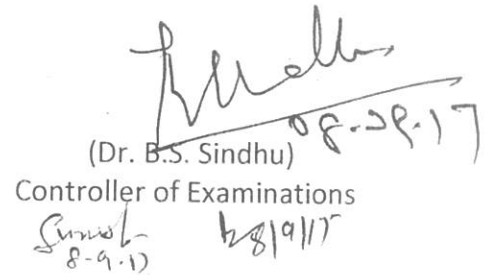 08.09.17
(Dr. B.S. Sindhu)
Controller of Examinations
8-9-17
8/9/17